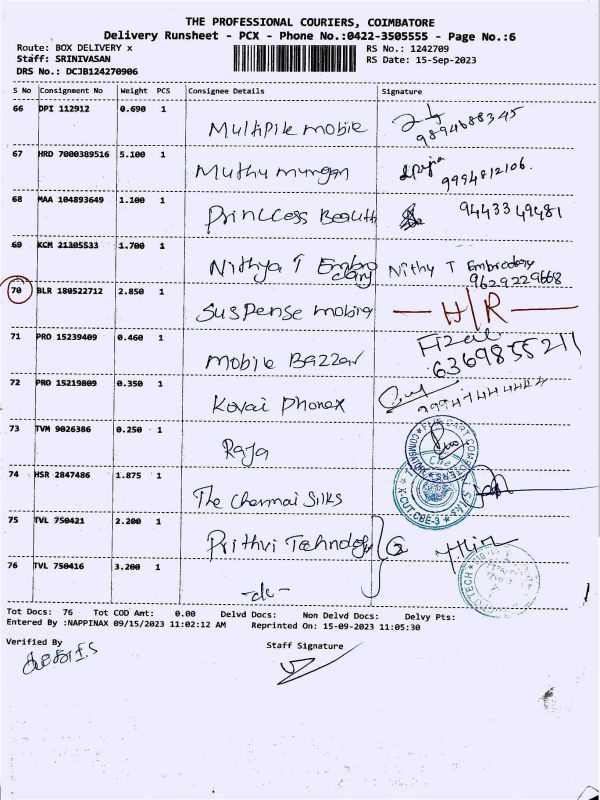 THE PROFESSIONAL COURIERS, COIMBATORE
Delivery Runsheet - PCX - Phone No.:0422-3505555 - Page No.:6
Route: BOX DELIVERY x RS No.: 1242709
Staff: SRINIVASAN RS Date: 15-Sep-2023
DRS No.: DCJB124270906
S No Consignment No Weight PCS Consignee Details Signature
66 DPI 112912 0.690 1
Multiple mobile 9894688345
67 HRD 7000389516 5.100 1
Muthu murugan 9994812106.
68 MAA 104893649 1.100 1
Princcess Beauth 9443349481
69 KCM 21305533 1.700 1
Nithya T Embro Nithy T Embrodery
dary 9629229668
70 BLR 180522712 2.850 1
Suspense mobing H/R
71 PRO 15239409 0.460 1
Mobile Bazzar 6369855211
72 PRO 15219809 0.350 1
Kovai Phonex
73 TVM 9026386 0.250 1
Raja
74 HSR 2847486 1.875 1
The Chennai Silks
75 TVL 750421 2.200 1
Prithvi Technology
76 TVL 750416 3.200 1
-do-
Tot Docs: 76 Tot COD Amt: 0.00 Delvd Docs: Non Delvd Docs: Delvy Pts:
Entered By :NAPPINAX 09/15/2023 11:02:12 AM Reprinted On: 15-09-2023 11:05:30
Verified By Staff Signature